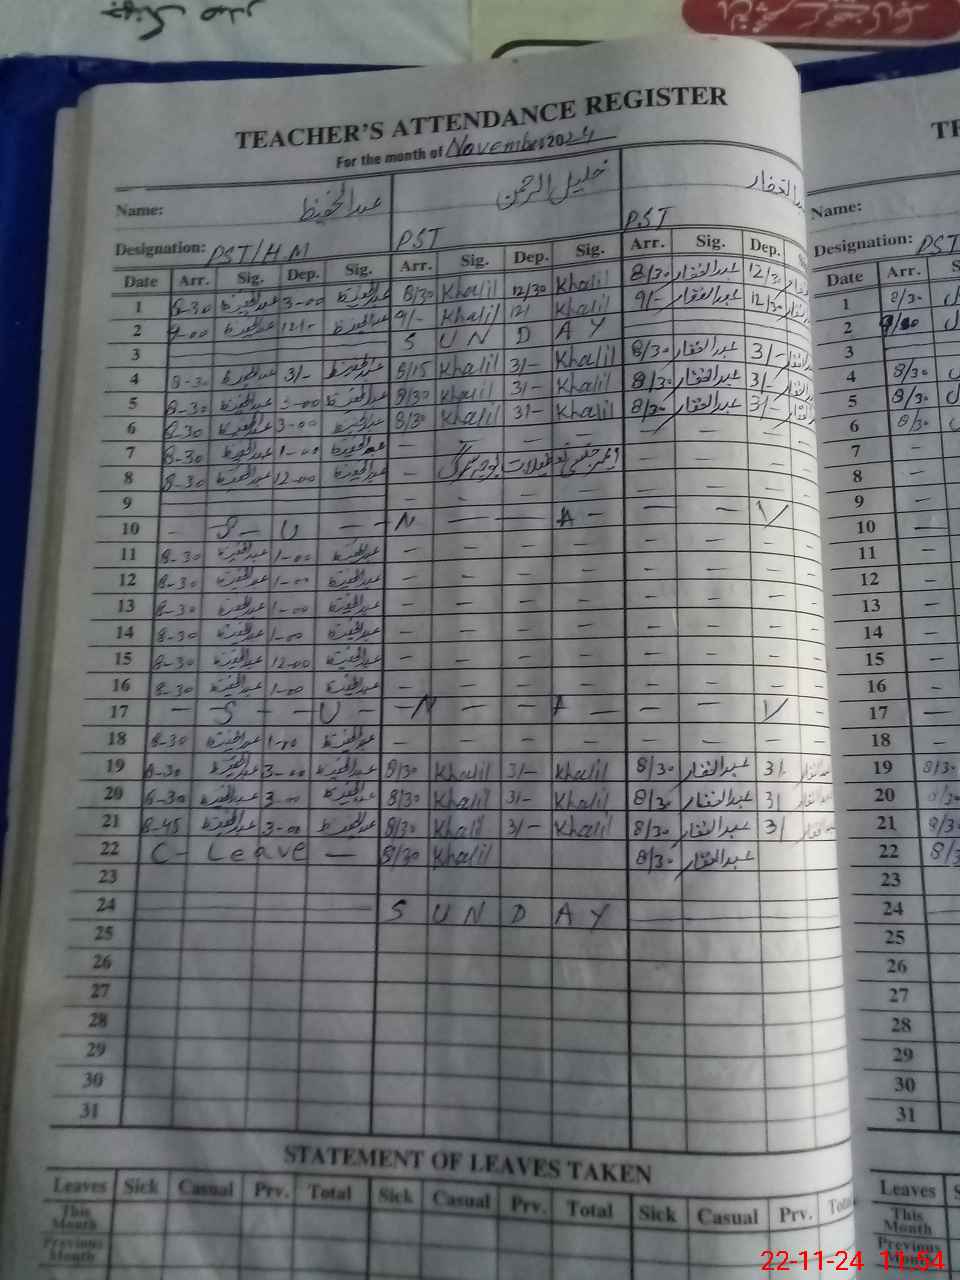 TEACHER'S ATTENDANCE REGISTER
For the month of November 2024
Name: عبدالحفیظ خلیل الرحمن عبدالغفار Name:
Designation: PST/H.M PST PST Designation: PST
Date Arr. Sig. Dep. Sig. Arr. Sig. Dep. Sig. Arr. Sig. Dep. Date Arr.
1 8-30 عبدالحفیظ 3-00 عبدالحفیظ 8/30 Khalil 12/30 Khalil 8/30 عبدالغفار 12/30 1 8/30
2 9-00 عبدالحفیظ 12/- عبدالحفیظ 9/- Khalil 12/ Khalil 9/- عبدالغفار 12/30 2 9/00
3 S U N D A Y 3
4 8-30 عبدالحفیظ 3/- عبدالحفیظ 8/15 Khalil 3/- Khalil 8/30 عبدالغفار 3/- 4 8/30
5 8-30 عبدالحفیظ 3-00 عبدالحفیظ 8/30 Khalil 3/- Khalil 8/30 عبدالغفار 3/- 5 8/30
6 8-30 عبدالحفیظ 3-00 عبدالحفیظ 8/30 Khalil 3/- Khalil 8/30 عبدالغفار 3/- 6 8/30
7 8-30 عبدالحفیظ 1-00 عبدالحفیظ — — — — — — — 7 —
8 8-30 عبدالحفیظ 12-00 عبدالحفیظ — تعطیلات بوجہ سموگ — — — 8 —
9 — — — — — — — 9 —
10 - S - U - - N — — A - — - V 10 —
11 8-30 عبدالحفیظ 1-00 عبدالحفیظ — — — — — — — 11 —
12 8-30 عبدالحفیظ 1-00 عبدالحفیظ — — — — — — — 12 —
13 8-30 عبدالحفیظ 1-00 عبدالحفیظ — — — — — — — 13 —
14 8-30 عبدالحفیظ 1-00 عبدالحفیظ — — — — — — — 14 —
15 8-30 عبدالحفیظ 12-00 عبدالحفیظ — — — — — — — 15 —
16 8-30 عبدالحفیظ 1-00 عبدالحفیظ — — — — — — — 16 -
17 - S - - U - - N - A — — - V - 17 —
18 8-30 عبدالحفیظ 1-00 عبدالحفیظ — — — — — — — 18 —
19 8-30 عبدالحفیظ 3-00 عبدالحفیظ 8/30 Khalil 3/- Khalil 8/30 عبدالغفار 3/- 19 8/30
20 8-30 عبدالحفیظ 3-00 عبدالحفیظ 8/30 Khalil 3/- Khalil 8/30 عبدالغفار 3/ 20 8/30
21 8-45 عبدالحفیظ 3-00 عبدالحفیظ 8/30 Khalil 3/- Khalil 8/30 عبدالغفار 3/ 21 8/30
22 C- Leave — 8/30 Khalil 8/30 عبدالغفار 22
23 23
24 S U N D A Y 24
25 25
26 26
27 27
28 28
29 29
30 30
31 31
STATEMENT OF LEAVES TAKEN
Leaves Sick Casual Prv. Total Sick Casual Prv. Total Sick Casual Prv. Leaves
This Month This Month
Previous Month Previous Month
22-11-24 11:54